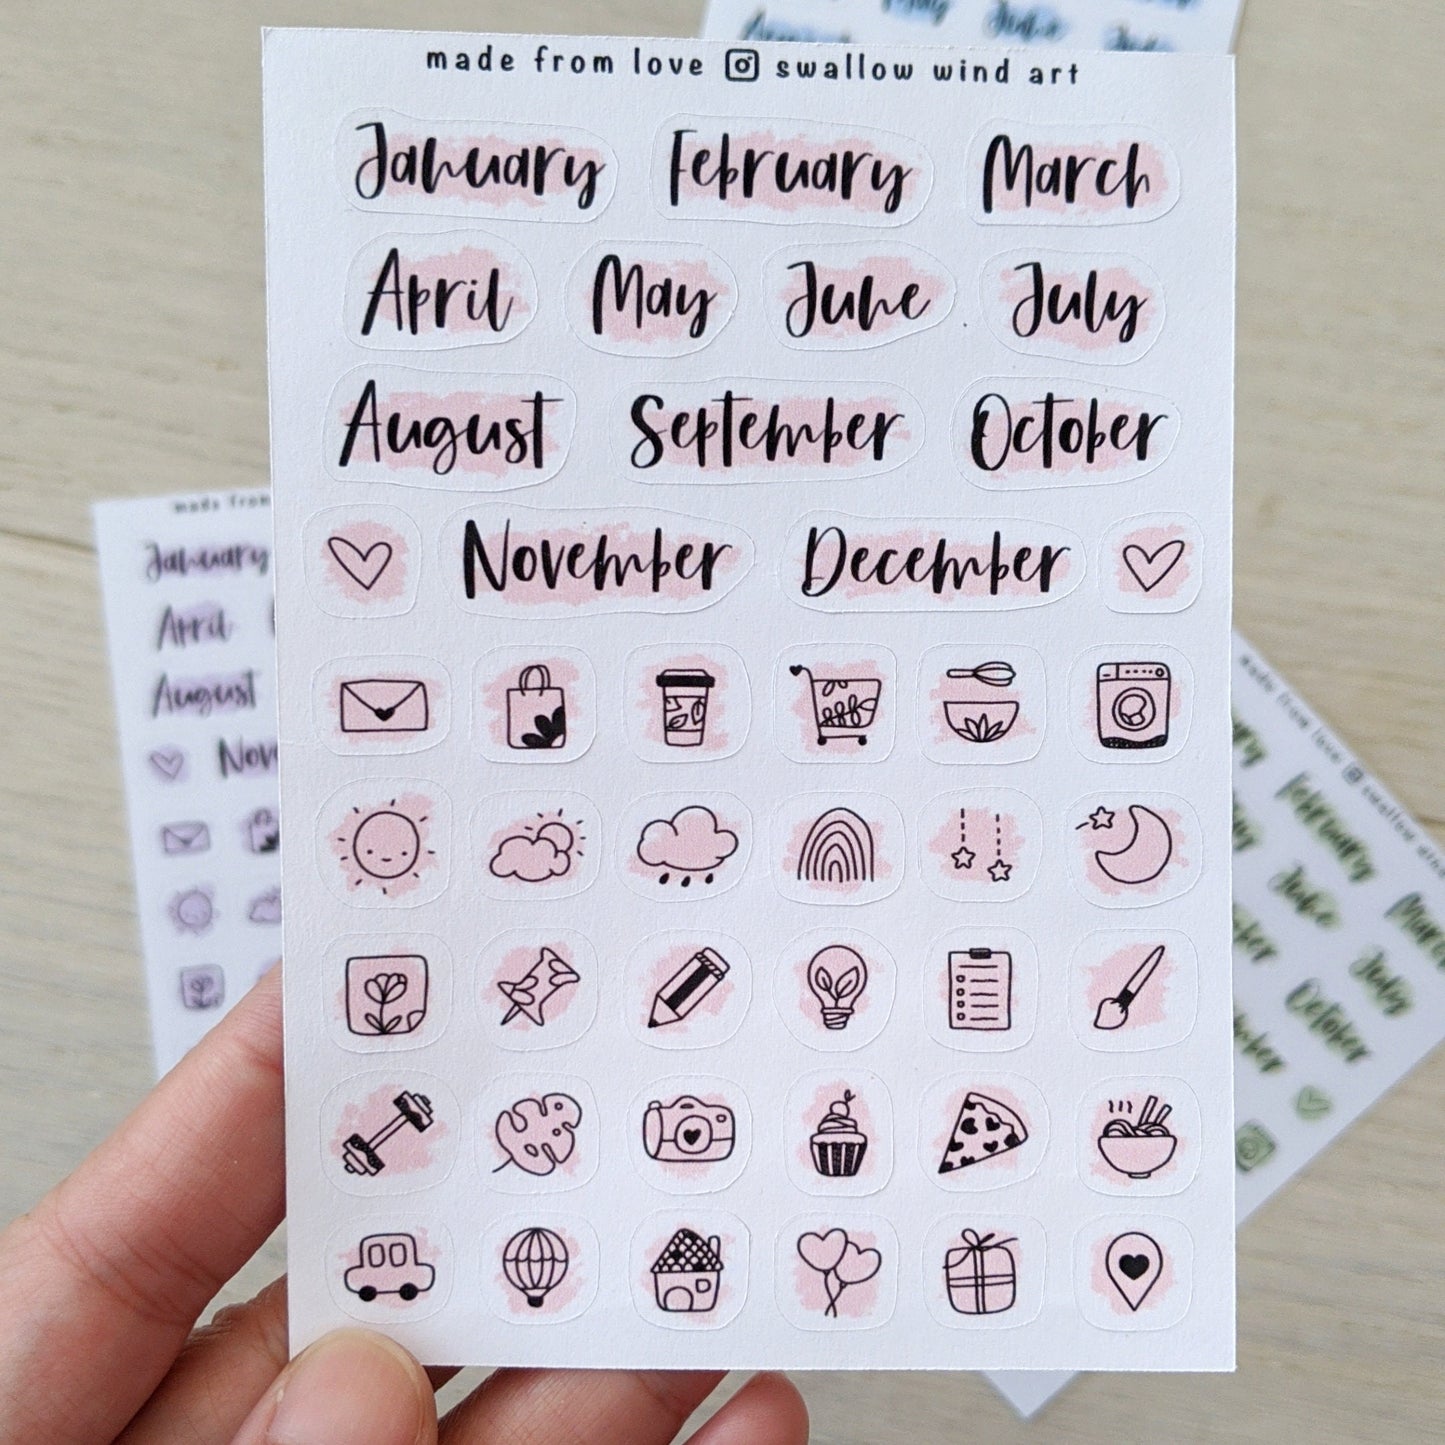 made from love swallow wind art
January February March
April May June July
August September October
November December
made from
January
April
August
made from love swallow wind
February
March
June
July
October
July June July